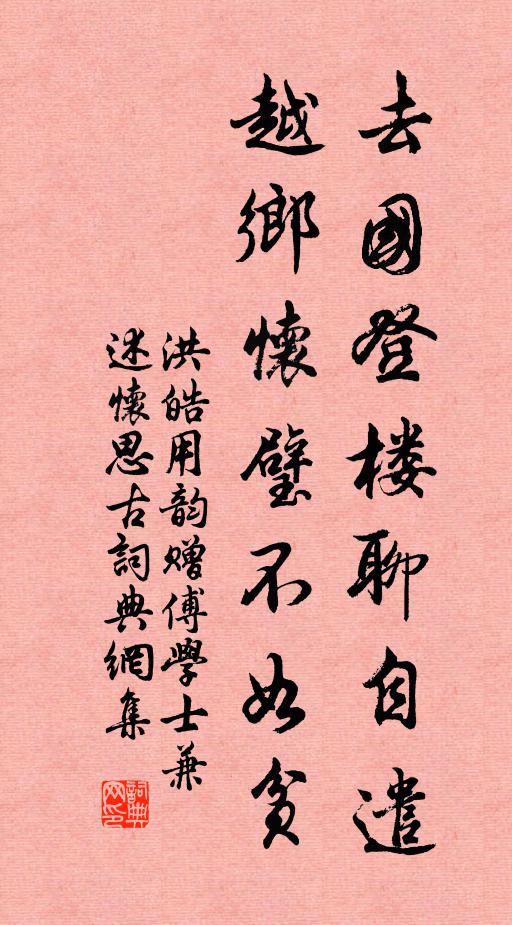 去國登楼聊自遣
越鄉懷璧不如貧
洪皓用韵赠傅學士兼
述懷思古詞典網集
詞典
网印